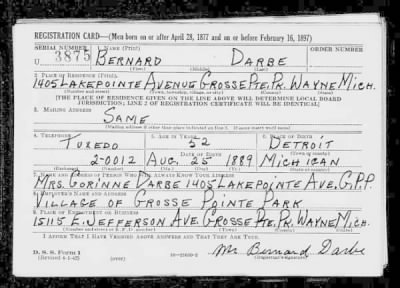 REGISTRATION CARD—(Men born on or after April 28, 1877 and on or before February 16, 1897)
SERIAL NUMBER 1. NAME (Print) ORDER NUMBER
U 3875 BERNARD DARBE
2. PLACE OF RESIDENCE (Print)
1405 LAKEPOINTE AVENUE GROSSE PTE. PK. WAYNE MICH.
[THE PLACE OF RESIDENCE GIVEN ON THE LINE ABOVE WILL DETERMINE LOCAL BOARD
JURISDICTION; LINE 2 OF REGISTRATION CERTIFICATE WILL BE IDENTICAL]
3. MAILING ADDRESS
SAME
[Mailing address if other than place indicated on line 2. If same insert word same]
4. TELEPHONE 5. AGE IN YEARS 6. PLACE OF BIRTH
TUXEDO 52 DETROIT
DATE OF BIRTH
2-0012 AUG. 25 1889 MICHIGAN
7. NAME AND ADDRESS OF PERSON WHO WILL ALWAYS KNOW YOUR ADDRESS
MRS. CORINNE DARBE 1405 LAKEPOINTE AVE, G.P.P.
8. EMPLOYER'S NAME AND ADDRESS
VILLAGE OF GROSSE POINTE PARK
9. PLACE OF EMPLOYMENT OR BUSINESS
15115 E. JEFFERSON AVE GROSSE PTE. PK. WAYNE MICH.
I AFFIRM THAT I HAVE VERIFIED ABOVE ANSWERS AND THAT THEY ARE TRUE.
D. S. S. Form 1
(Revised 4-1-42) (over) Mr. Bernard Darbe
(Registrant's signature)